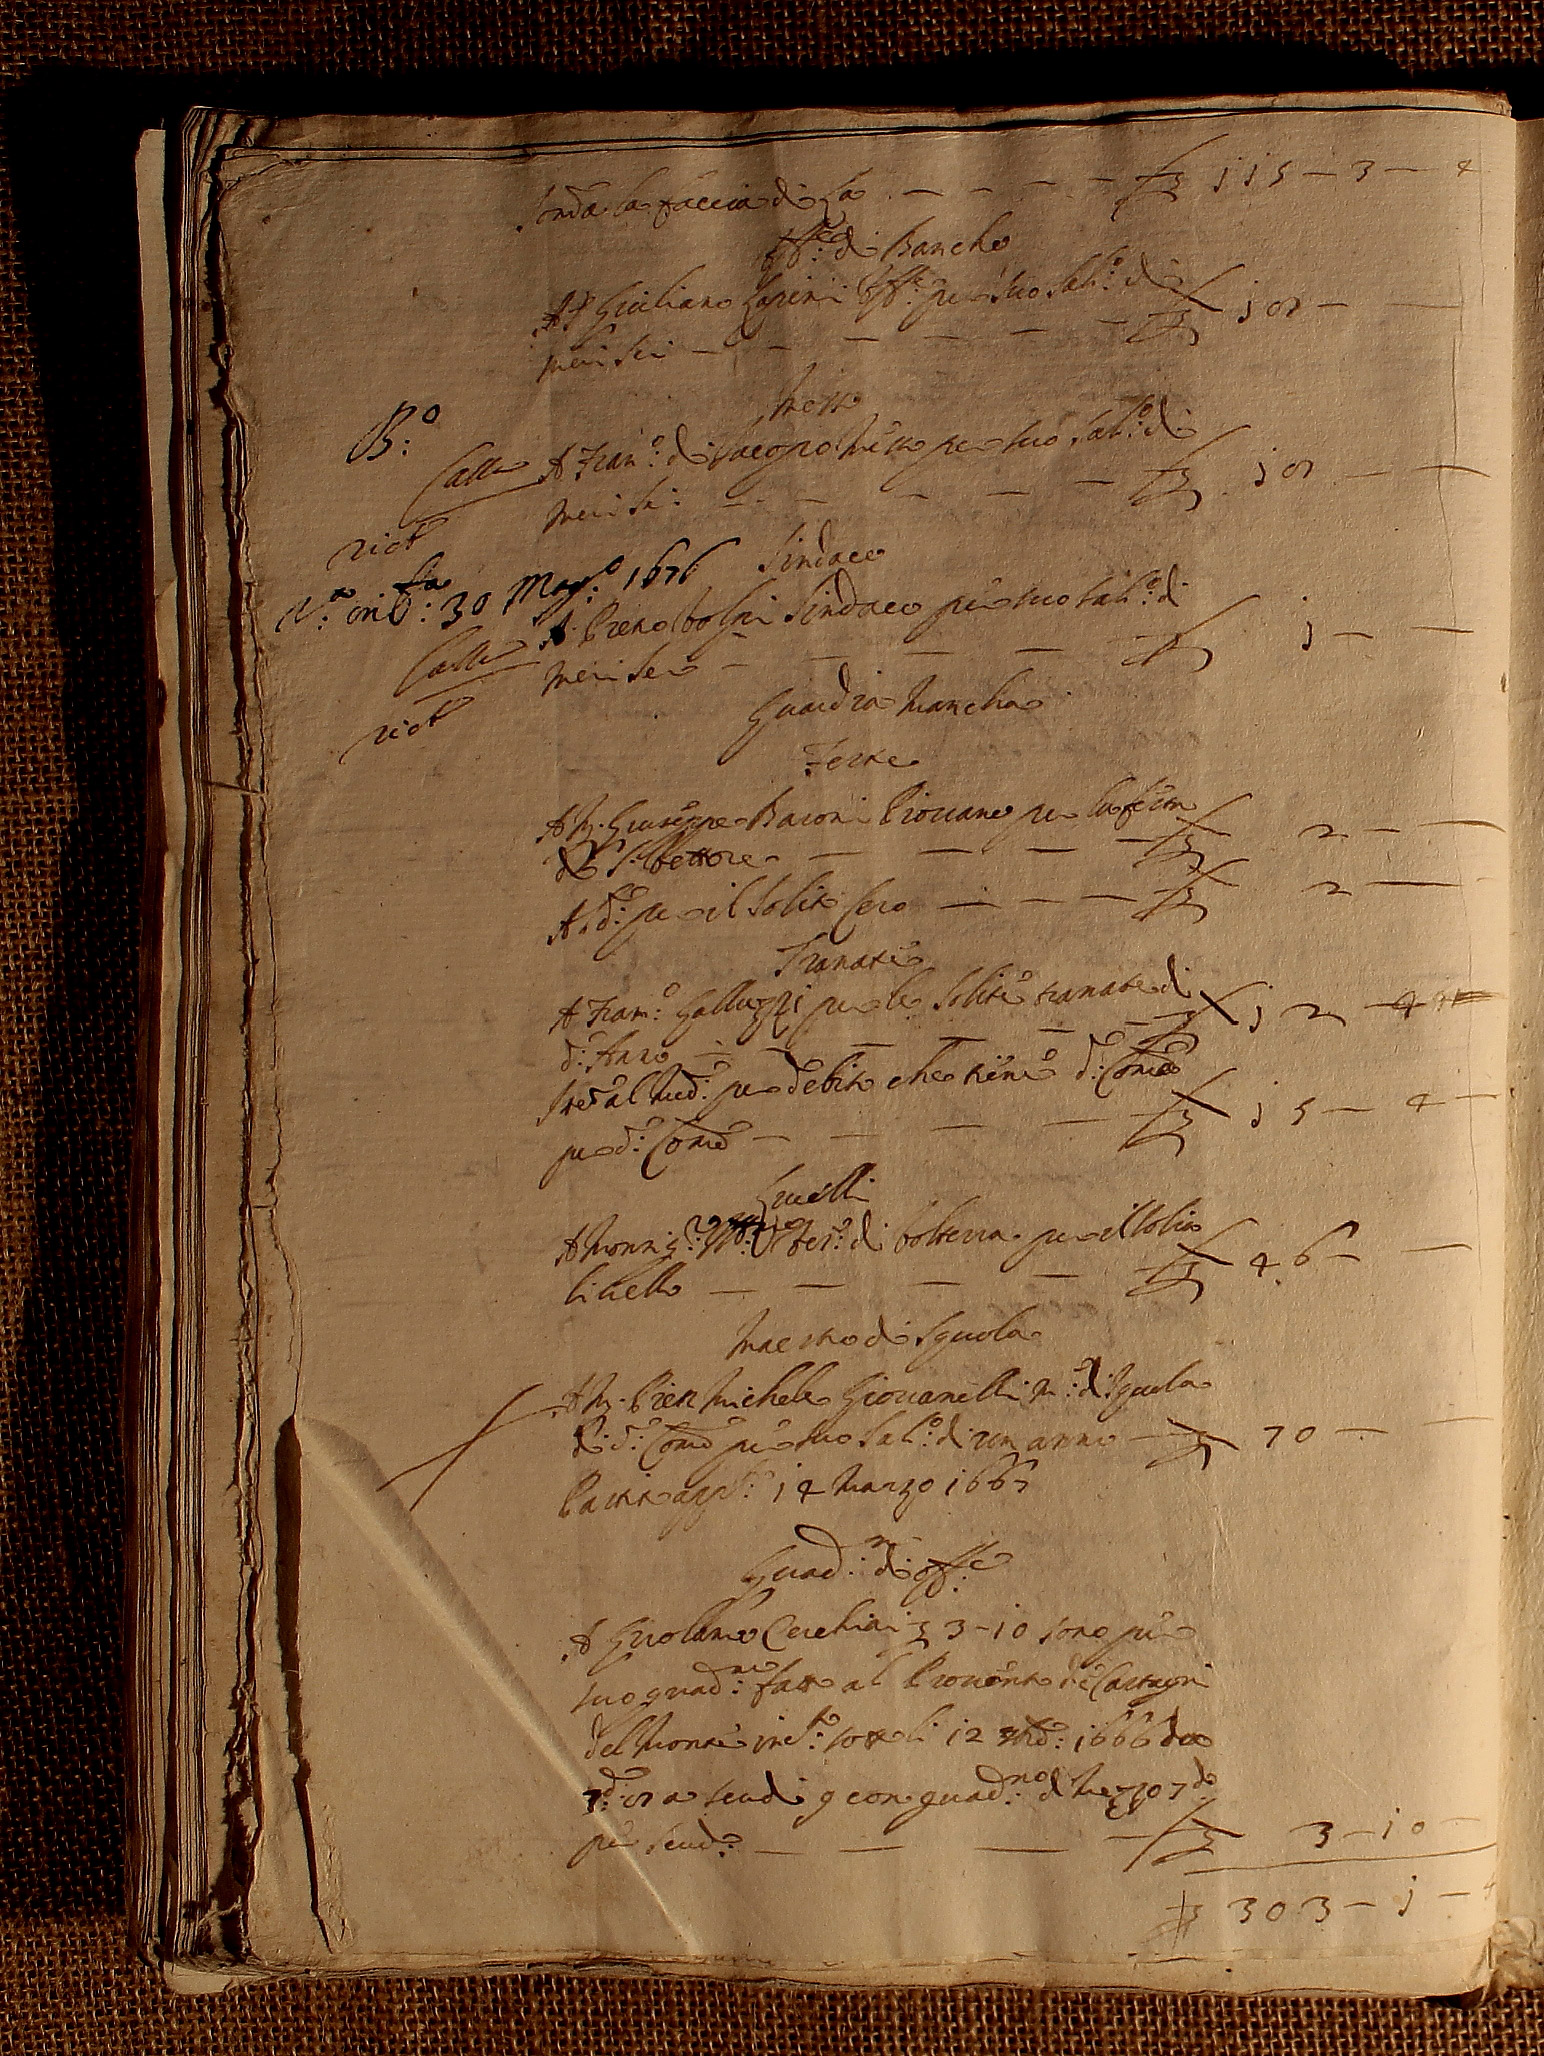 Somma la faccia di la — — — — £ 115 — 3 — 4
Off.le di Banch
A S. Giuliano Lapini Off.e per suo sal.o di
mesi sei — — — — — £ 18 —
Messo
B.o
Calle A Fran.o di Jacopo Messo per suo sal.o di
mesi sei — — — — — £ 18 — —
rict
30 Mag.o 1676
Sindaco
Calle A Piero Volpi Sindaco per suo sal.o di
mesi sei — — — — £ 1 — —
rict
Guardia Mancha
Feste
A M. Giuseppe Baroni Piovano per la festa
di S. Vettore — — — — £ 2 — —
A d.o per il solito Cero — — — £ 2 —
Tramate
A Fran.o Galluzzi per le solite tramate di
d.o Anno — — — — £ 12
al med.o per debito che tiene d.o Com.e
per d.o Com.e — — — — £ 15 — 4 —
Livelli
A Mons.re di Volterra per il solito
livello — — — — £ 46 — —
Maestro di Squola
A M. Pier Michele Giovanelli M.o di Squola
di d.o Com.e per suo sal.o di un anno — £ 70 — —
Partito app.o 14 Marzo 1667
Guad.ni di off.e
A Girolamo Cecchini £ 3-10 sono per
suo guad.no fatto al Provento de Castagni
del Monte sotto li 12 1666 da
a scudi 9 con guad.no di mezzo
per scudo — — — — £ 3 — 10 —
£ 303 — 1 — 4